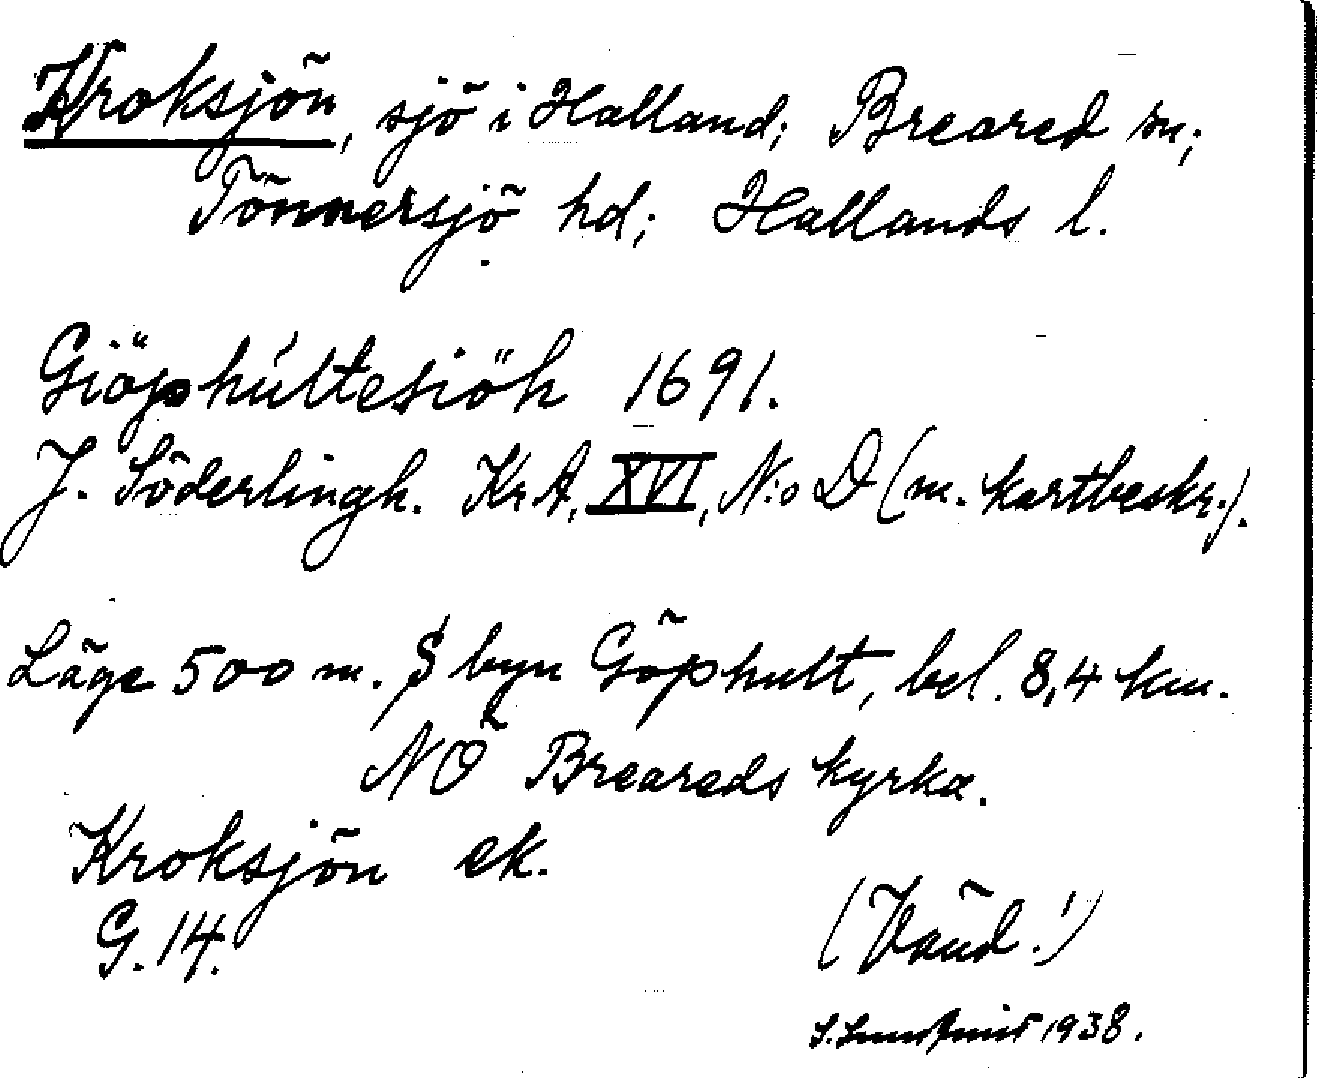 Kroksjön, sjö i Halland; Breared sn;
Tönnersjö hd; Hallands l.
Giöphúltesiöh 1691.
J. Söderlingh. Kr.A, XVI, N:o D (m. kartbeskr.).
Läge 500 m. S byn Göphult, bel. 8,4 km.
NÖ Breareds kyrka.
Kroksjön ek.
G. 14.
(Vänd!)
1938.